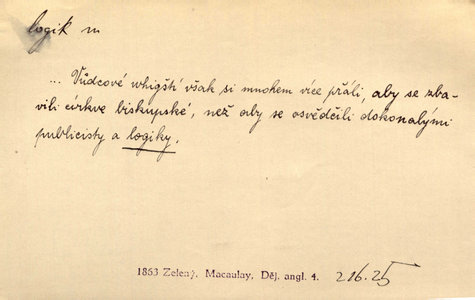 logik m
... Vůdcové whigští však si mnohem více přáli, aby se zba-
vili církve biskupské, než aby se osvědčili dokonalými
publicisty a logiky.
1863 Zelený, Macaulay, Děj. angl. 4. 216.25